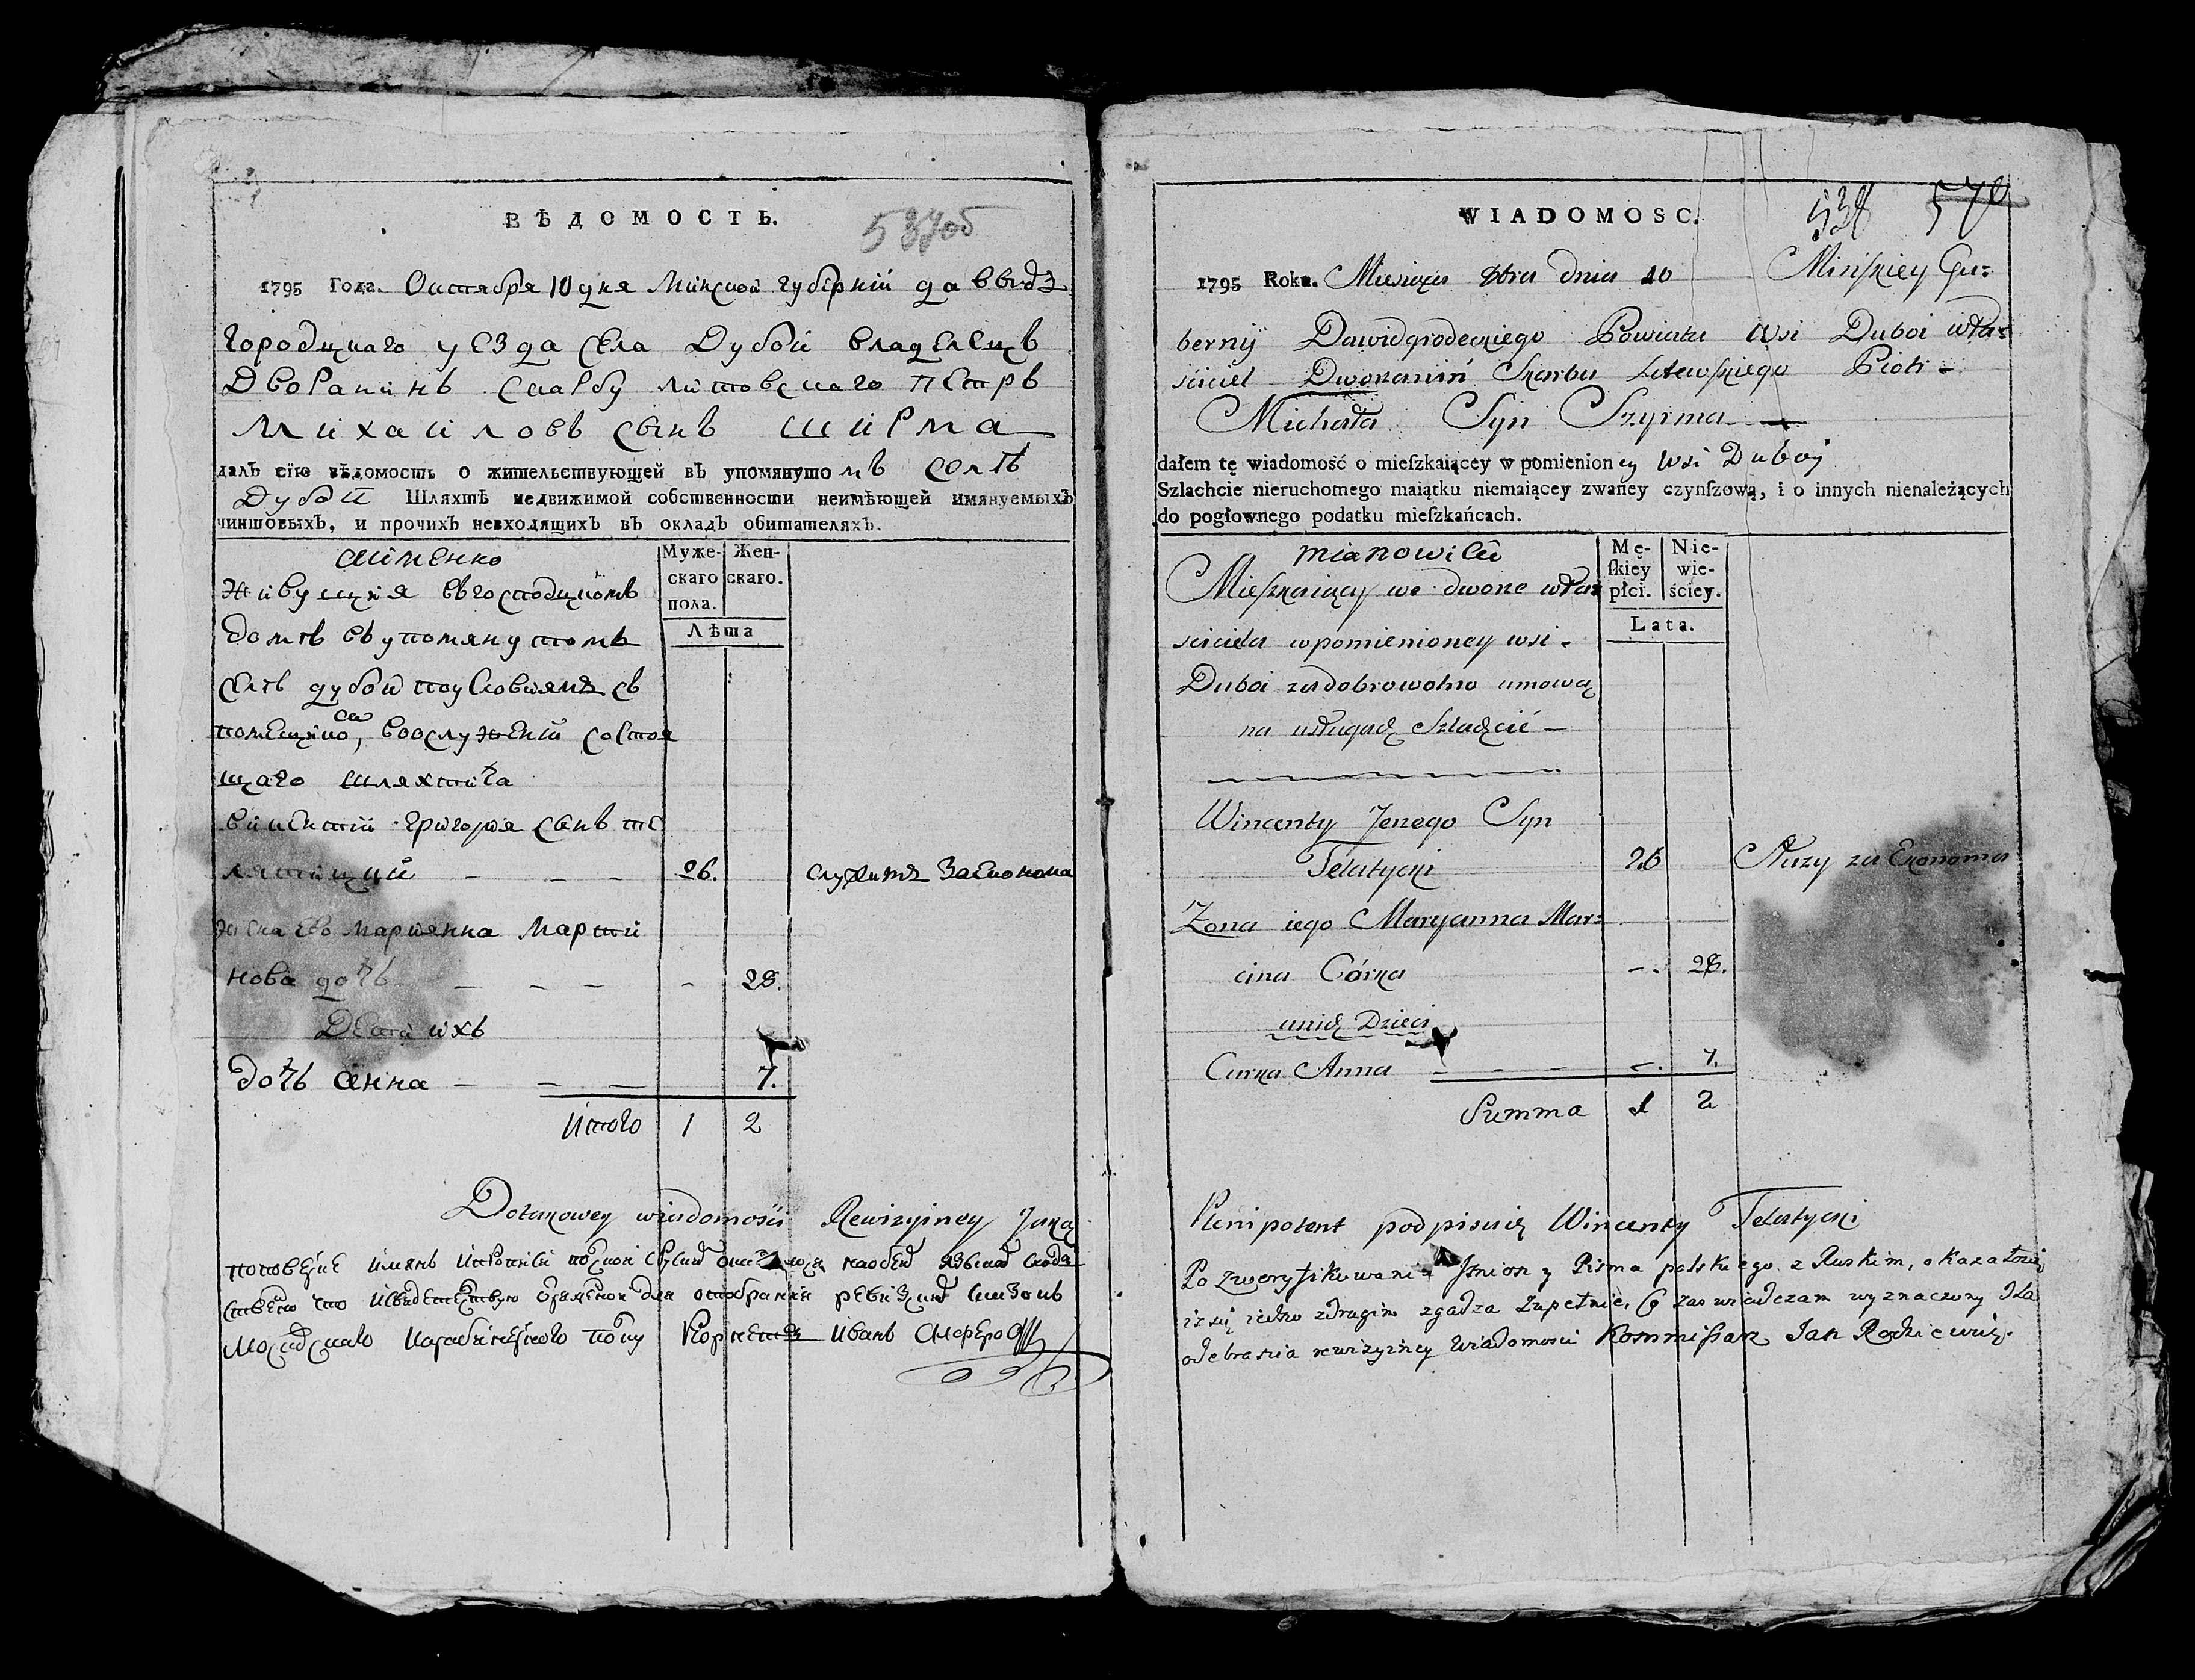 ВѢДОМОСТЬ.
537об
1795 Года. Октября 10 дня Минской губернїи давыдъ
городцкаго уезда села Дубой владелецъ
Дворанинъ скарбу литовскаго Петръ
Михаиловъ сынъ Ширма
далъ сїю вѣдомость о жительствующей въ упомянуто мъ селѣ
Дубой Шляхтѣ недвижимой собственности неимѣющей имянуемыхъ
чиншовыхъ, и прочихъ невходящихъ въ окладъ обитателяхъ.
аимено
Муже-
скаго
пола.
Жен-
скаго.
Лѣта
Живущия въ господцкомъ
домѣ въ упомянутомъ
селѣ дубой по условиямъ съ
помещико, воослужении состоя
ка
щаго шляхтича
викентий григорья сынъ те
лятицкий — — — 26. служитъ за економа
жена его марианна марти
нова дочь — — — - 28.
Дети ихъ
дочь анна — — — 7.
Итого 1 2
Do takowey wiadomosci Rewizyiney Jako
Корнетъ Иванъ
WIADOMOSC.
538 570
1795 Roku. Miesiąca 8bra dnia 10 Minskiey Gu=
bernij Dawidgrodeckiego Powiatu Wsi Duboi wła=
ściciel Dworzanin Skarbu Litewskiego Piotr -
Michała Syn Szyrma —
dałem tę wiadomość o mieſzkaiącey w pomienion ey Wsi Duboy
Szlachcie nieruchomego maiątku niemaiącey zwaney czynſzową, i o innych nienależących
do pogłownego podatku mieſzkańcach.
mianowicie
Mę-
ſkiey
płci.
Nie-
wie-
ściey.
Lata.
Mieszkaiący we dworze wła=
sciciela w pomienioney wsi -
Duboi za dobrowolno umową
na usługach Szlachcic —
Wincenty Jerzego Syn
Telatycki 26 Służy za Ekonoma
Zona iego Maryanna Mar=
cina Córka —. 28.
u nich Dzieci
Curka Anna — — — —. 7.
Summa 1 2
Plenipotent podpisuię Wincenty Telatycki
Po zweryfikowaniu Imion z Pisma polskiego z Ruskim, okazało się
iż się iedno z drugim zgadza zupełnie, Co zaswiadczam wyznaczony dla
odebrania rewizyiney wiadomosci Kommissarz Jan Rodziewicz.